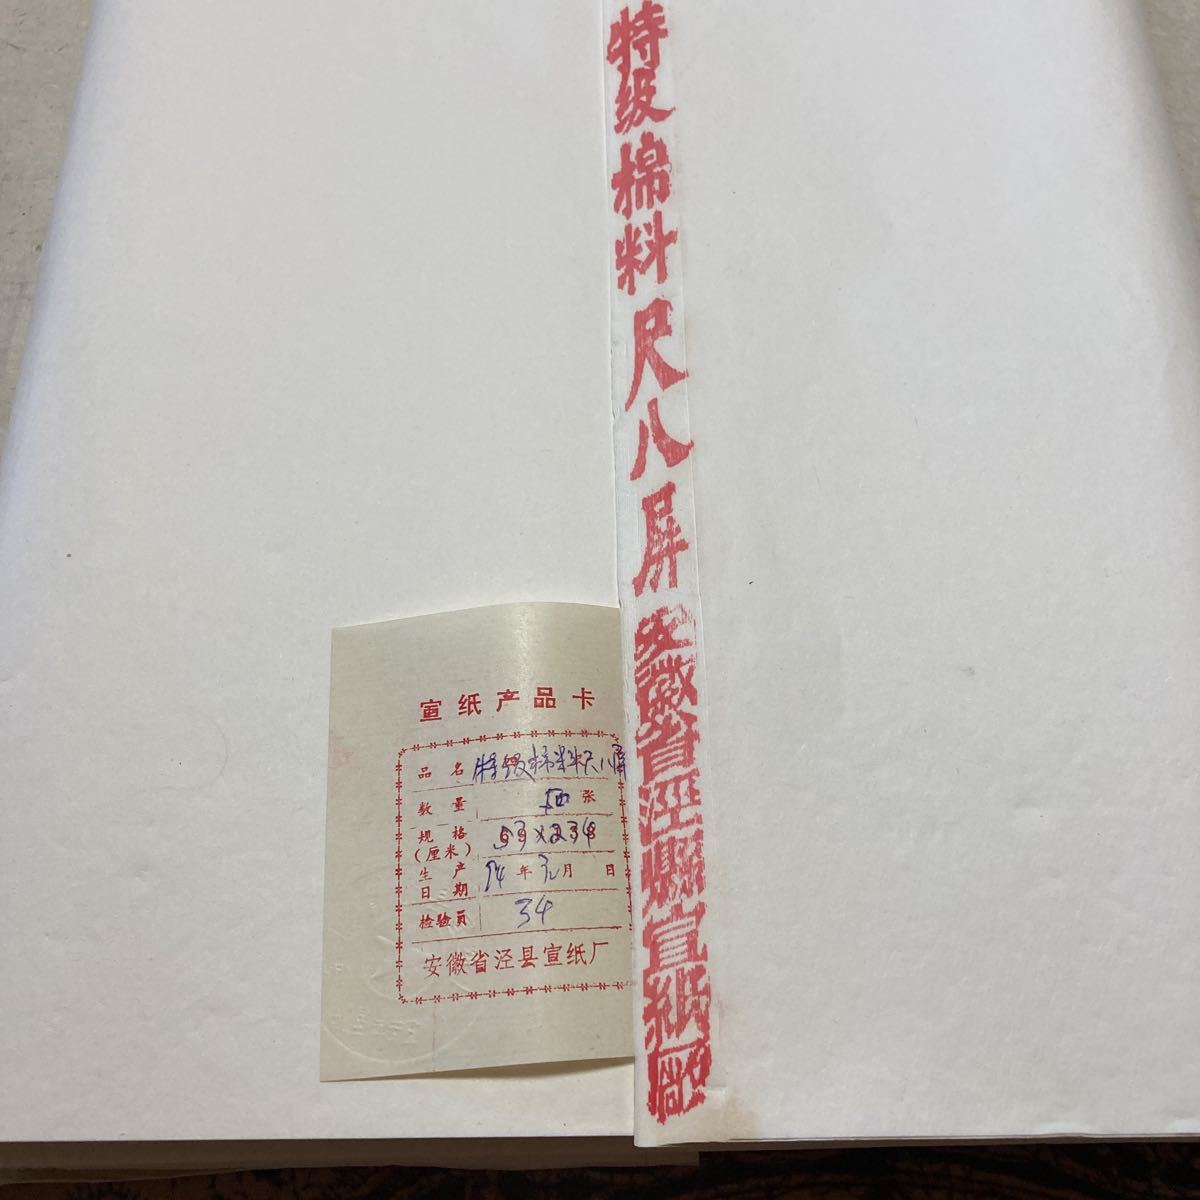 特级棉料尺八屏安徽省泾縣宣紙厰
宣纸产品卡
品名 特级棉料尺八屏
数量 50 张
规格(厘米) 53×234
生产日期 94年元月 日
检验员 34
安徽省泾县宣纸厂